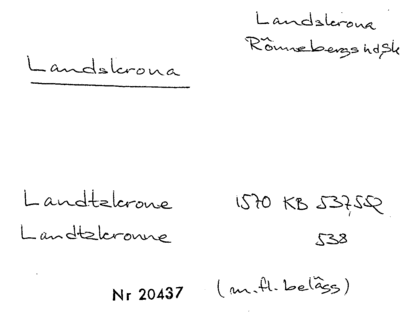 Landskrona
Rönnebergs hd, Sk
Landskrona
Landtzkrone 1570 KB 537, 552
Landtzkronne 538
Nr 20437 (m.fl. belägg)